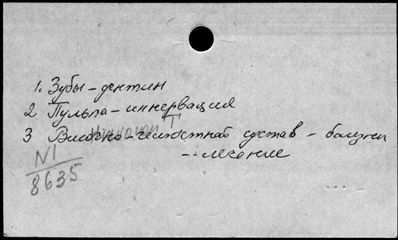 1. Зубы - дентин
2 Пульпа - иннервация
3 Височно - челюстной сустав - болезни
- лечение
N1
8635